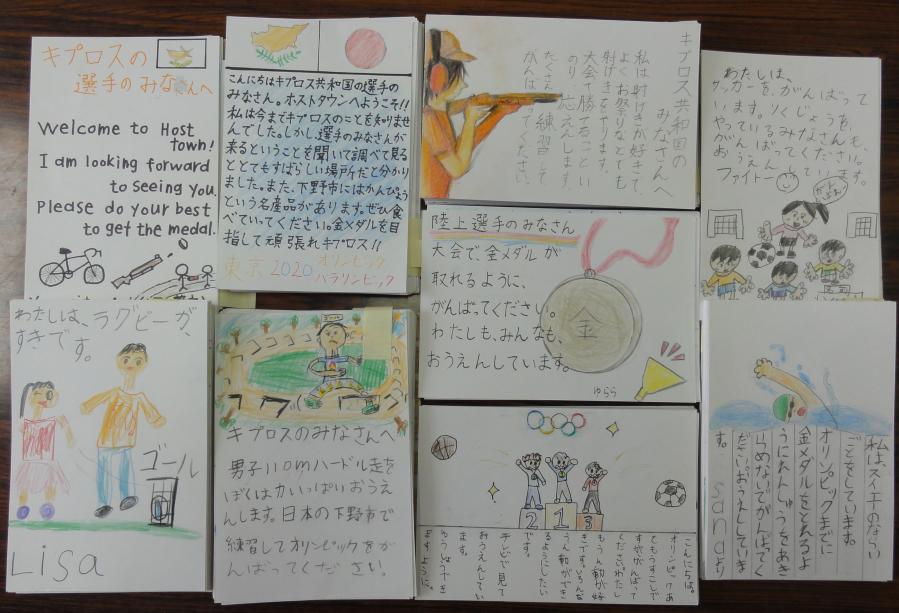 キプロスの
選手のみなさんへ
Welcome to Host
town!
I am looking forward
to seeing you.
Please do your best
to get the medal.
こんにちはキプロス共和国の選手の
みなさん。ホストタウンへようこそ!!
私は今までキプロスのことを知りませ
んでした。しかし、選手のみなさんが
来るということを聞いて調べて見る
ととてもすばらしい場所だと分かり
ました。また、下野市にはかんぴょう
という名産品があります。ぜひ食
べていってください。金メダルを目
指して頑張れキプロス!!
東京2020オリンピック
パラリンピック
キプロス共和国の
みなさんへ
私は射げきが好きで、
よくお祭りなどでも
射げきをやります。
大会で勝てることをい
のり、応えんします。
たくさん練習して
がんばってください。
わたしは、
サッカーを、がんばって
います。りくじょうを、
やっているみなさんも、
がんばってください。
おうえんしています。
ファイトー
がんばれ!
陸上選手のみなさん
大会で、金メダルが
取れるように、
がんばってください。
わたしも、みんなも、
おうえんしています。
金
ゆらら
わたしは、ラグビーが、
すきです。
ゴール
Lisa
キプロスのみなさんへ
男子110mハードル走を
ぼくは力いっぱいおうえ
んします。日本の下野市で
練習してオリンピックをが
んばってください!
2 1 3
こんにちは。
オリンピックあ
てもうすこしで
すががんばって
ください。わたし
もうん動が好
きです。いろんな
うん動ができ
るようにしたい
です。
テレビで見て
おうえんしてい
ます。
ゆうしょうでき
ますように。
私は、スイエイのならい
ごとをしています。
オリンピックまでに
金メダルをとれるよ
うにれんしゅうをあき
らめないでがんばってく
ださい。おうえんしていま
す。
sanaより